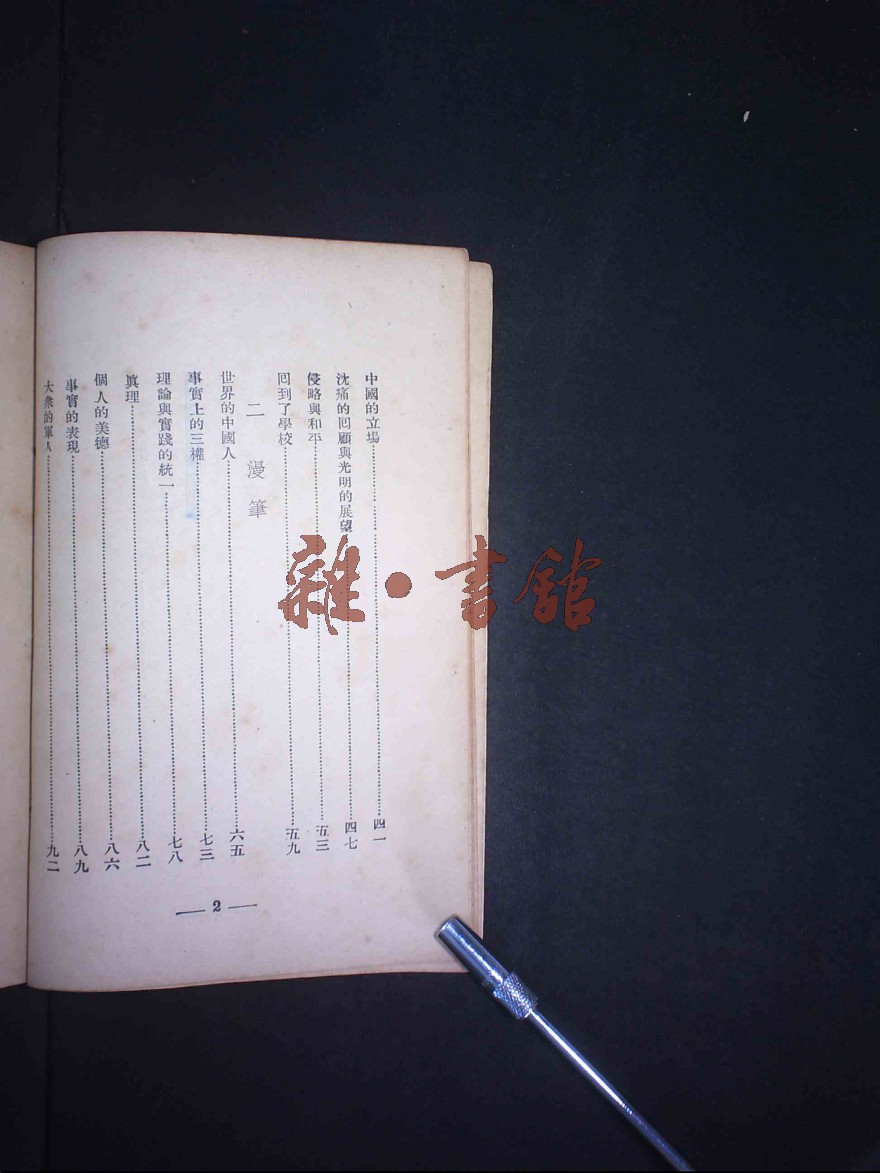 中國的立場⋯⋯四一
沈痛的囘顧與光明的展望⋯⋯四七
侵略與和平⋯⋯五三
囘到了學校⋯⋯五九
二 漫筆
世界的中國人⋯⋯六五
事實上的三權⋯⋯七三
理論與實踐的統一⋯⋯七八
眞理⋯⋯八二
個人的美德⋯⋯八六
事實的表現⋯⋯八九
大衆的軍人⋯⋯九二
— 2 —
雜·書館